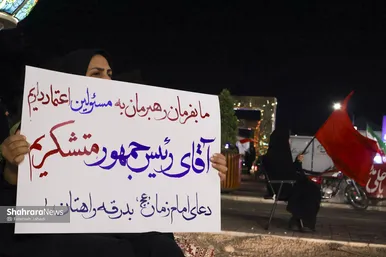 ما بفرمان رهبرمان به مسئولین اعتماد داریم
آقای رئیس جمهور متشکریم
دعای امام زمان (عج) بدرقه راهتان
ShahraraNews